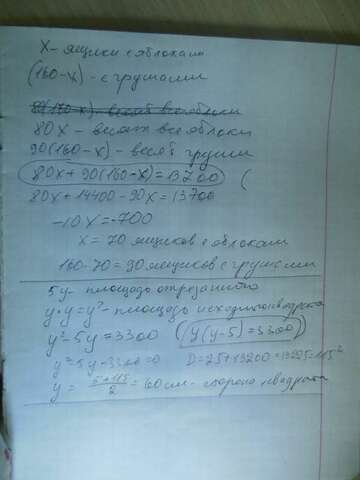 X - ящики с яблоками
(160-x) - с грушами
80x - весят все яблоки
90(160-x) - весят груши
80x + 90(160-x) = 13700 (
80x + 14400 - 90x = 13700
-10x = -700
x = 70 ящиков с яблоками
160-70 = 90 ящиков с грушами
5y - площадь отрезанного
y·y = y² - площадь исходного квадрата
y² - 5y = 3300 (y(y-5) = 3300)
y² - 5y - 3300 = 0 D = 25 + 13200 = 13225 = 115²
y = 5+115/2 = 60 см - сторона квадрата